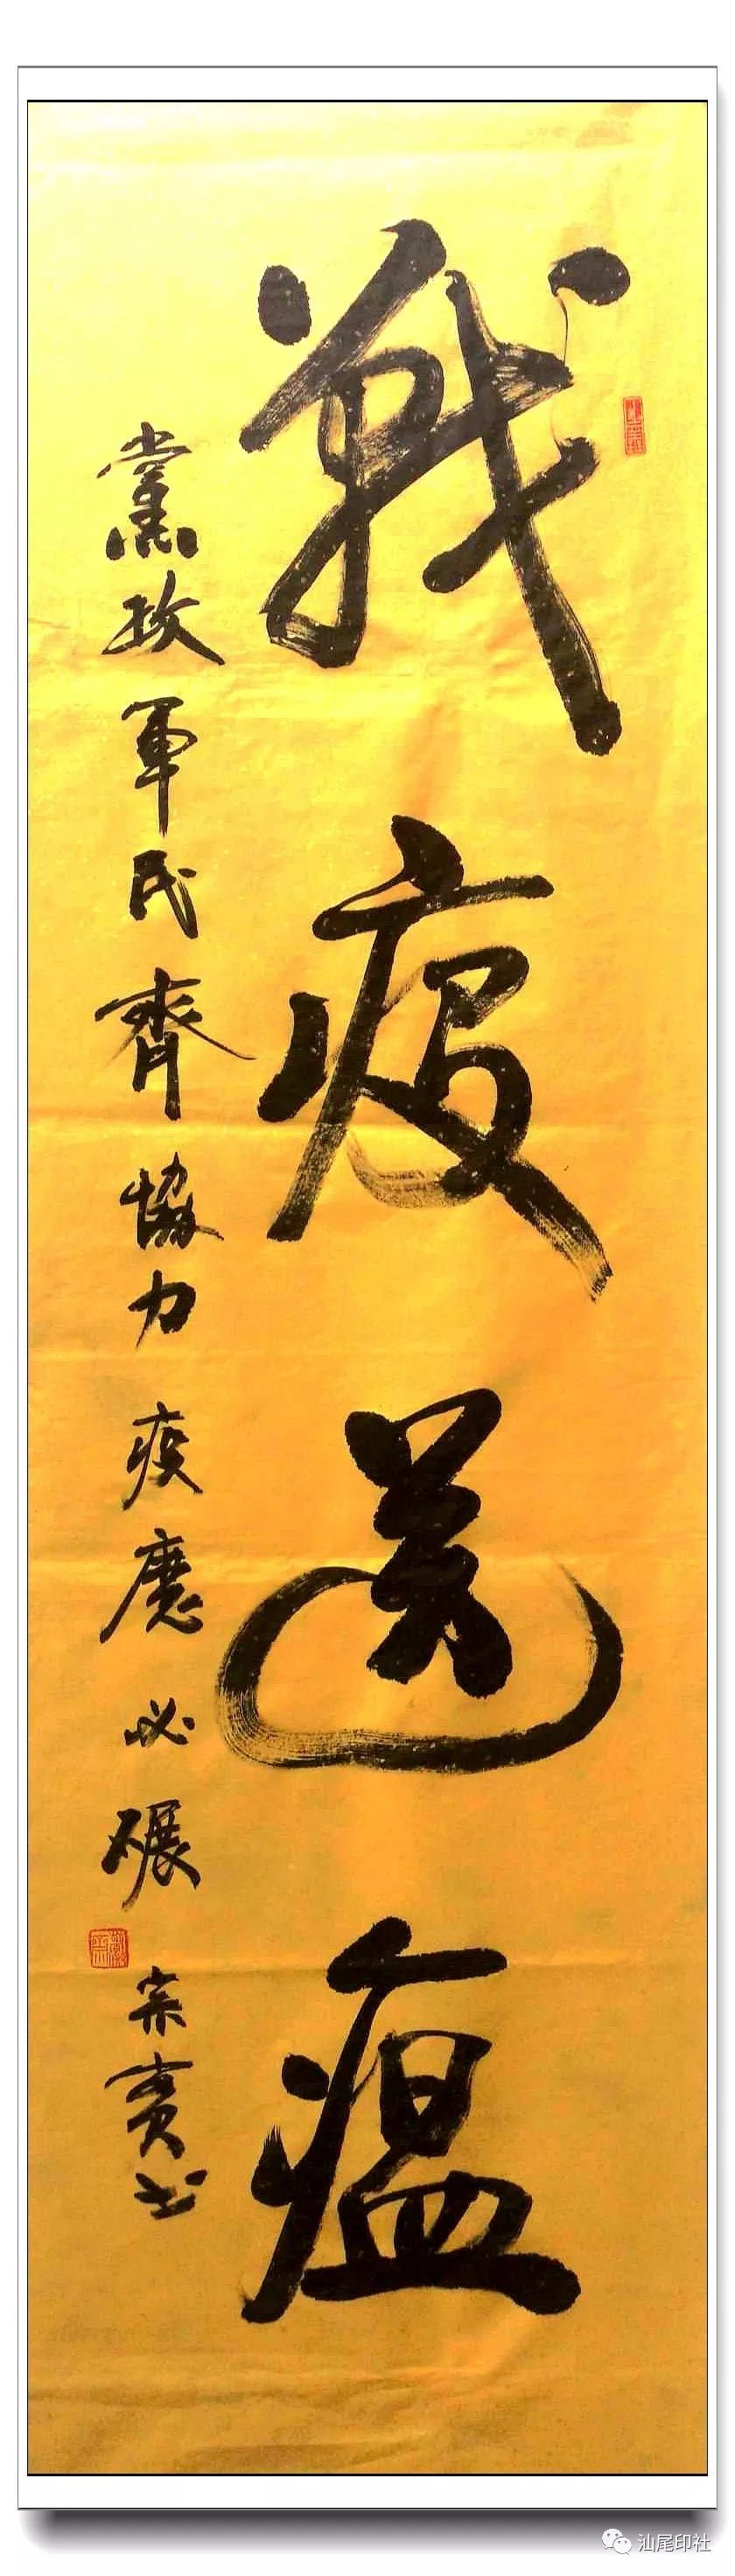 戰疫送瘟
黨政軍民齊協力疫魔必碾
宗賁书
汕尾印社